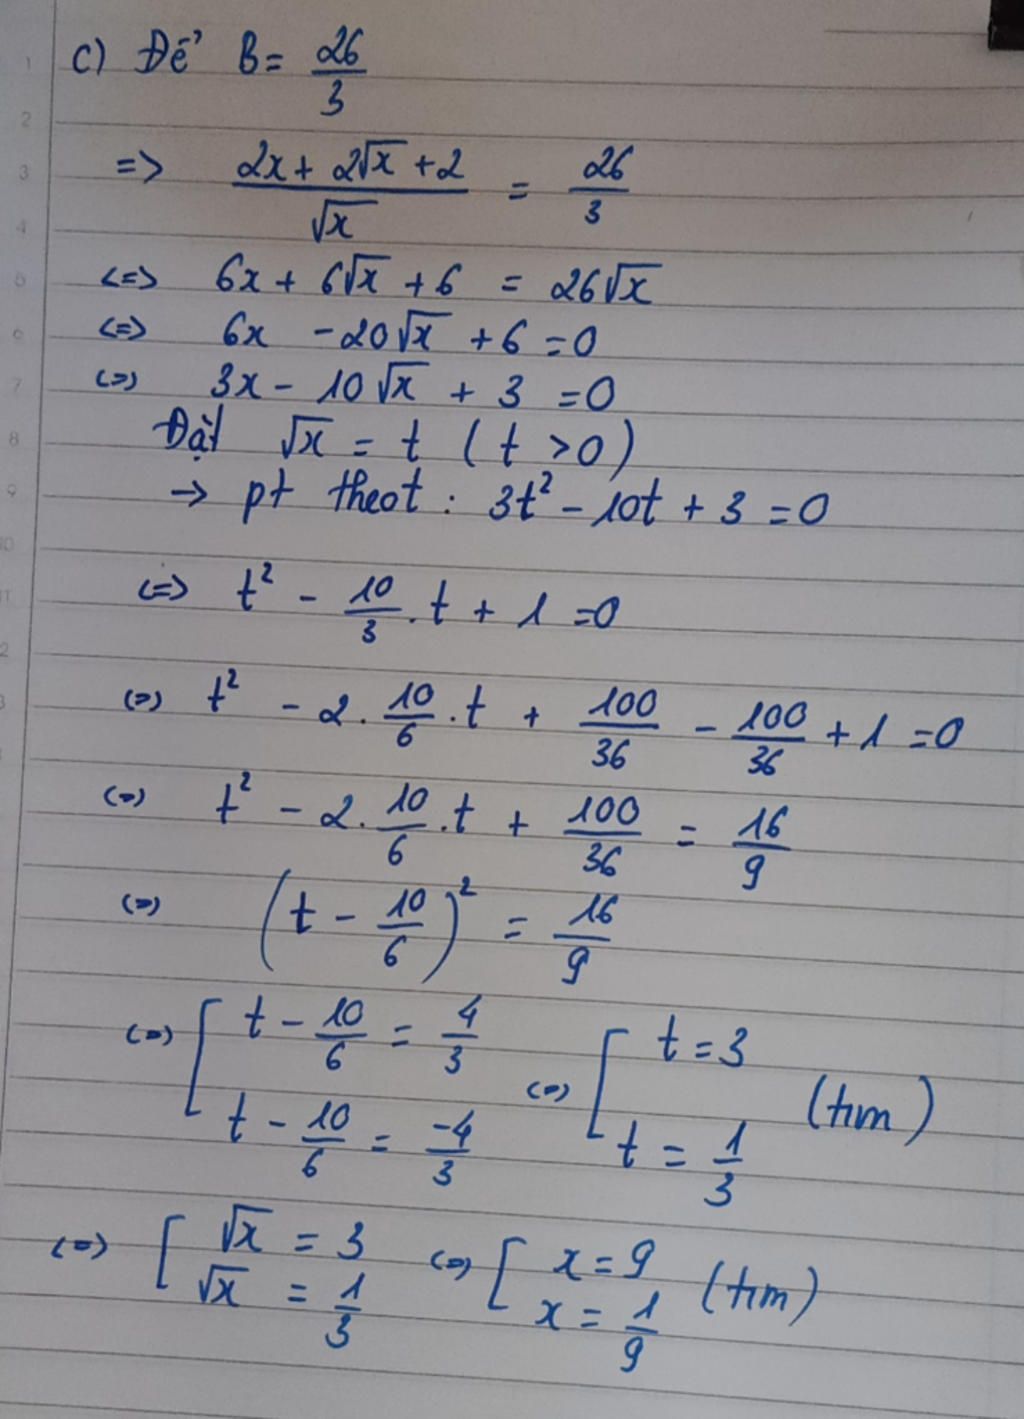 c) Để B = 26/3
=> (2x + 2√x + 2)/√x = 26/3
<=> 6x + 6√x + 6 = 26√x
<=> 6x - 20√x + 6 = 0
<=> 3x - 10√x + 3 = 0
Đặt √x = t ( t > 0 )
→ pt theo t : 3t² - 10t + 3 = 0
<=> t² - 10/3 . t + 1 = 0
<=> t² - 2. 10/6 . t + 100/36 - 100/36 + 1 = 0
<=> t² - 2. 10/6 . t + 100/36 = 16/9
<=> (t - 10/6)² = 16/9
<=> [ t - 10/6 = 4/3 ; t - 10/6 = -4/3 <=> [ t = 3 ; t = 1/3 (t/m)
<=> [ √x = 3 ; √x = 1/3 <=> [ x = 9 ; x = 1/9 (t/m)